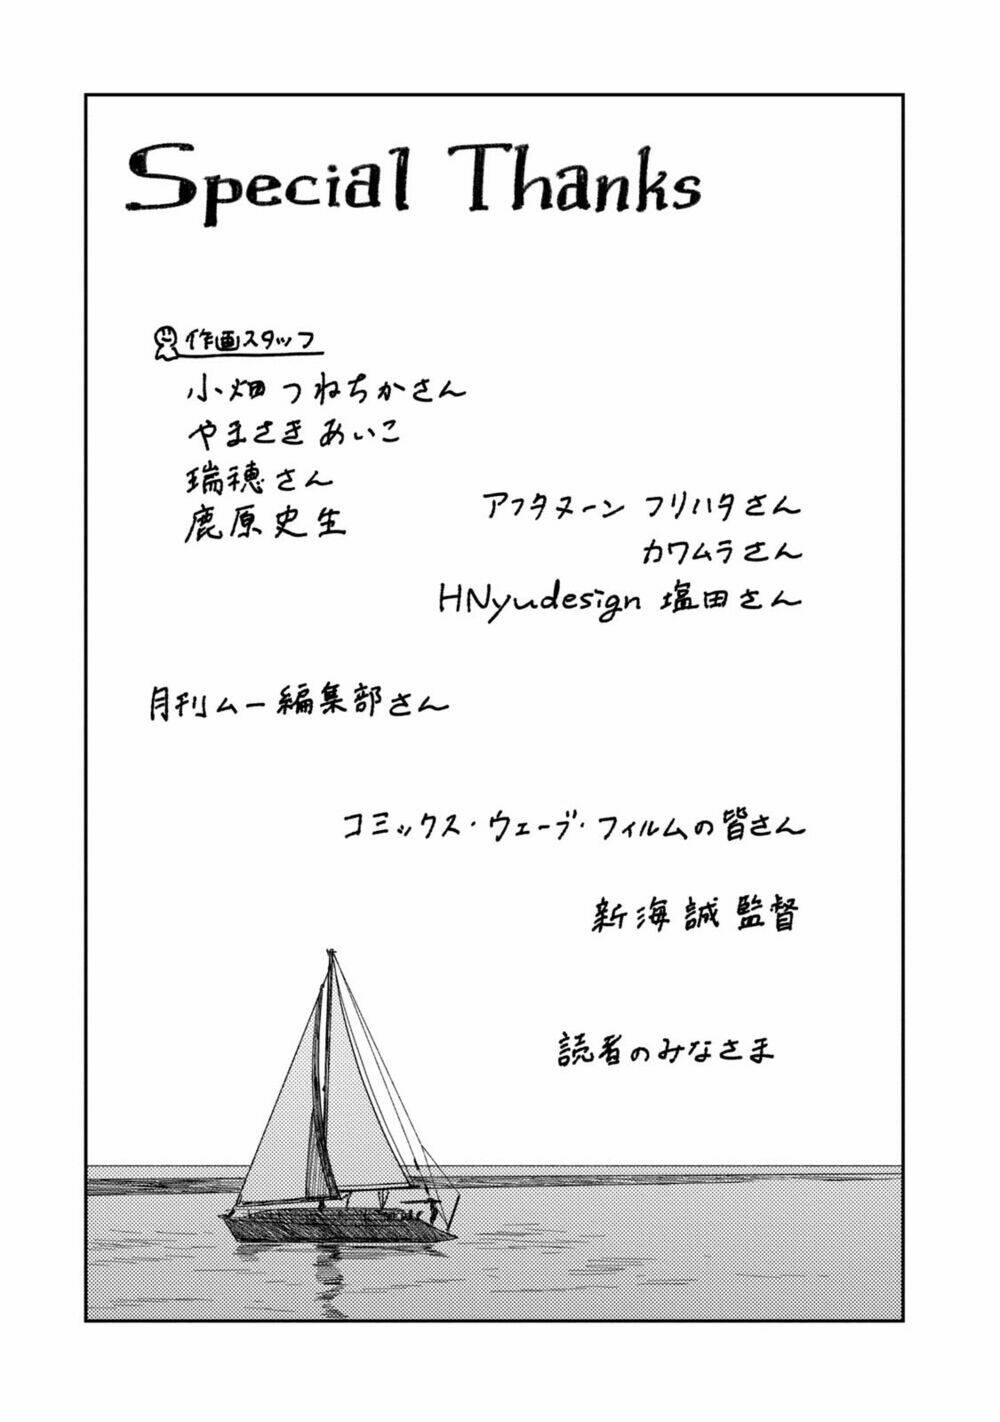 Special Thanks
作画スタッフ
小畑 つねちかさん
やまさき あいこ
瑞穂さん
鹿原史生
アフタヌーン フリハタさん
カワムラさん
HNyudesign 塩田さん
月刊ムー編集部さん
コミックス・ウェーブ・フィルムの皆さん
新海誠監督
読者のみなさま